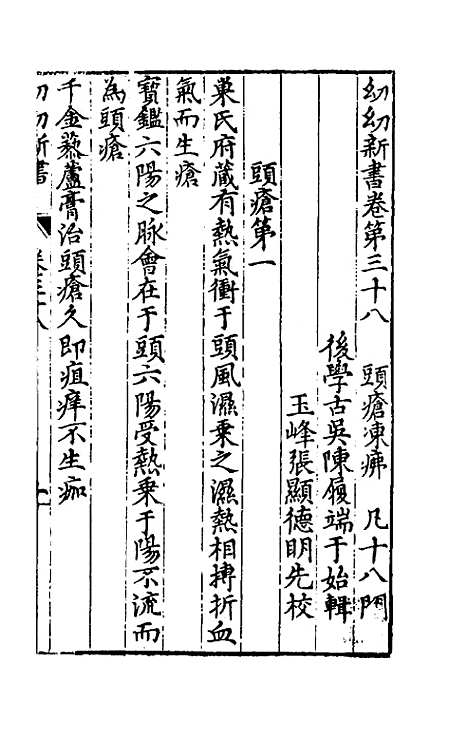 幼幼新書卷第三十八　頭瘡凍痱　凡十八門
後學古吳陳履端于始輯
玉峰張顯德明先校
頭瘡第一
巢氏府藏有熱氣衝于頭風濕乗之濕熱相搏折血
氣而生瘡
寳鑑六陽之脉會在于頭六陽受熱乗于陽不流而
為頭瘡
千金藜蘆膏治頭瘡久即疽痒不生痂
幼幼新書　卷三十八　一